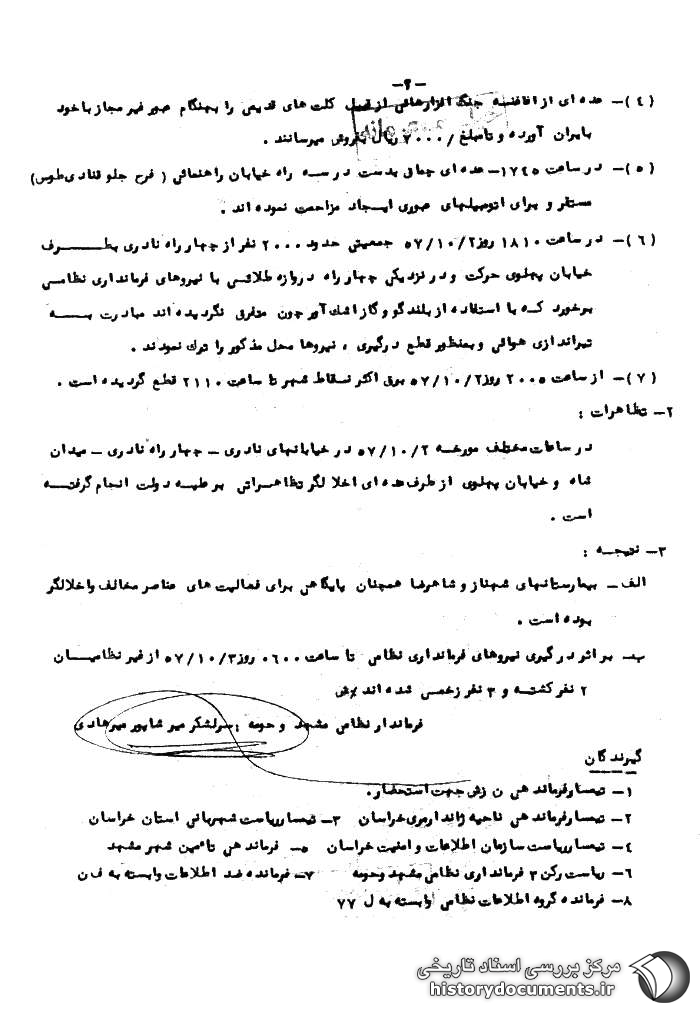 -۲-
(۴)- عده ای از افاغنه جنگ افزارهائی از قبیل کلت های قدیمی را بهنگام عبور غیر مجاز باخود
بایران آورده و تامبلغ /۷۰۰۰ ریال بفروش میرسانند .
(۵)- در ساعت ۱۷۴۵- عده ای چماق بدست در سه راه خیابان راهنمائی ( فرح جلو قنادی طوس)
مستقر و برای اتومبیلهای عبوری ایجاد مزاحمت نموده اند .
(۶)- در ساعت ۱۸۱۰ روز ۵۷/۱۰/۲ جمعیتی حدود ۲۰۰۰ نفر از چهار راه نادری بطرف
خیابان پهلوی حرکت و در نزدیکی چهار راه دروازه طلائی با نیروهای فرمانداری نظامی
برخورد که با استفاده از بلندگو و گاز اشک آور چون متفرق نگردیده اند مبادرت به
تیراندازی هوائی و بمنظور قطع درگیری ، نیروها محل مذکور را ترک نمودند .
(۷)- از ساعت ۲۰۰۵ روز ۵۷/۱۰/۲ برق اکثر نقاط شهر تا ساعت ۲۱۱۰ قطع گردیده است .
۲- تظاهرات :
در ساعات مختلف مورخه ۵۷/۱۰/۲ در خیابانهای نادری - چهار راه نادری - میدان
شاه و خیابان پهلوی از طرف عده ای اخلالگر تظاهراتی بر علیه دولت انجام گرفته
است .
۳- نتیجه :
الف - بیمارستانهای شهناز و شاهرضا همچنان پایگاهی برای فعالیت های عناصر مخالف واخلالگر
بوده است .
ب- بر اثر درگیری نیروهای فرمانداری نظامی تا ساعت ۰۶۰۰ روز ۵۷/۱۰/۳ از غیر نظامیان
۲ نفر کشته و ۳ نفر زخمی شده اند
فرماندار نظامی مشهد و حومه : سرلشگر میر شاپور میرهادی
گیرندگان
۱- تیمسار فرماندهی ن زش جهت استحضار .
۲- تیمسار فرماندهی ناحیه ژاندارمری خراسان ۳- تیمسار ریاست شهربانی استان خراسان
۴- تیمسار ریاست سازمان اطلاعات و امنیت خراسان ۵- فرماندهی تامین شهر مشهد
۶- ریاست رکن ۳ فرمانداری نظامی مشهد وحومه ۷- فرمانده ضد اطلاعات وابسته به
۸- فرمانده گروه اطلاعات نظامی وابسته به ل ۷۷
مرکز بررسی اسناد تاریخی
historydocuments.ir